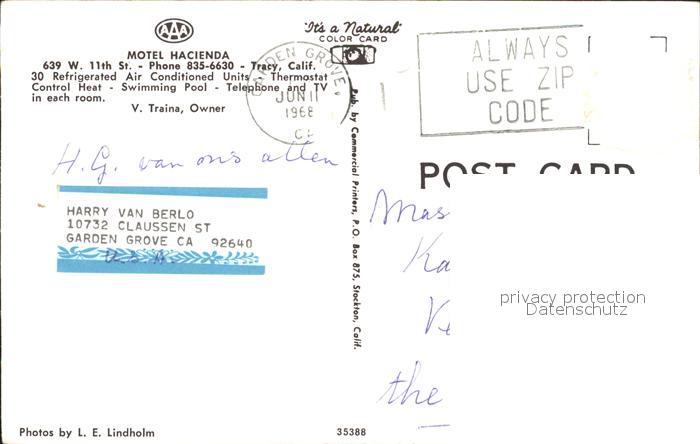 AAA
MOTEL HACIENDA
639 W. 11th St. - Phone 835-6630 - Tracy, Calif.
30 Refrigerated Air Conditioned Units - Thermostat
Control Heat - Swimming Pool - Telephone and TV
in each room.
V. Traina, Owner
"It's a Natural"
COLOR CARD
GARDEN GROVE,
JUN 11
1968
CA
ALWAYS
USE ZIP
CODE
Pub. by Commercial Printers, P.O. Box 875, Stockton, Calif.
POST CARD
H.G. van ons allen
HARRY VAN BERLO
10732 CLAUSSEN ST
GARDEN GROVE CA 92640
U.S.A.
Mas
Ka
Ve
the
privacy protection
Datenschutz
Photos by L. E. Lindholm
35388